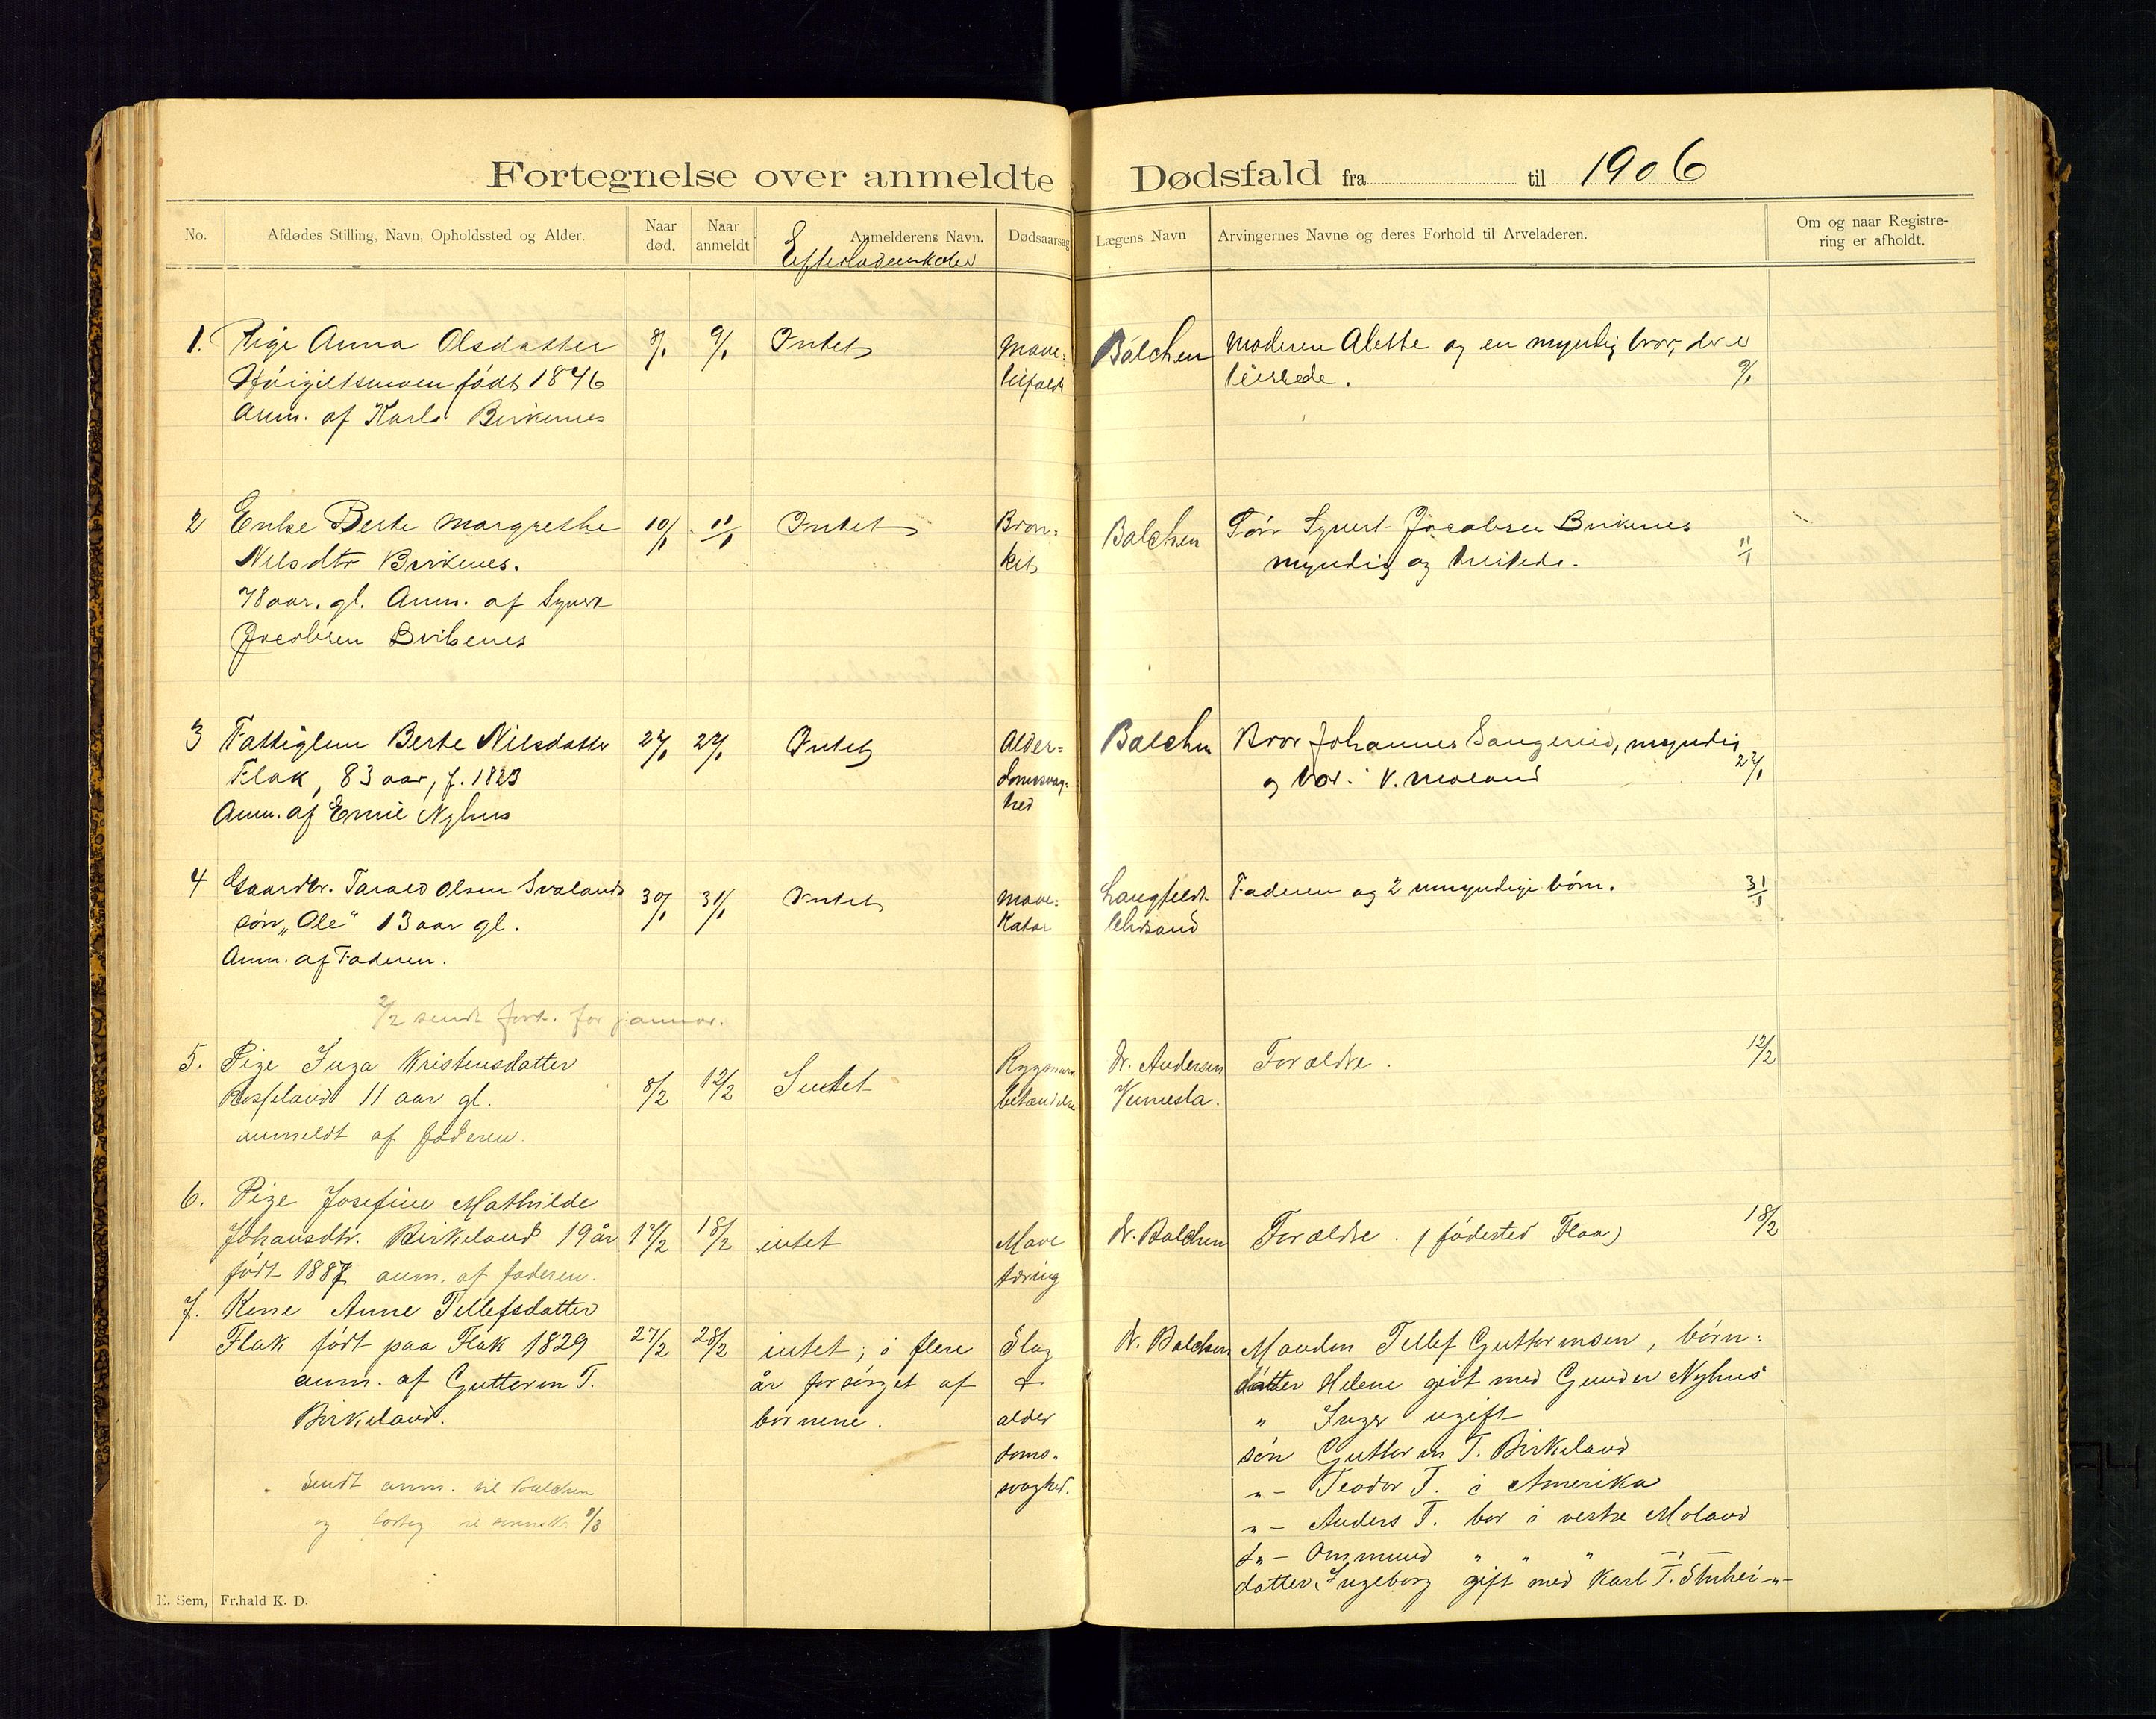 Fortegnelse over anmeldte Dødsfald fra til 1906
No. Afdødes Stilling, Navn, Opholdssted og Alder. Naar død. Naar anmeldt Anmelderens Navn. Dødsaarsag Lægens Navn Arvingernes Navne og deres Forhold til Arveladeren. Om og naar Registrering er afholdt.
1. Pige Anna Olsdatter 8/1 9/1 Intet Mave: Balchen Moderen Alette og en myndig bror, der er
født 1846 9/1
Anm. af Karl Birkenes
2 Enke Berte Margrethe 10/1 11/1 Intet Bron: Balchen Søn Syvert Jacobsen Birkenes
Nilsdtr Birkenes. kit myndig og 11/1
78 aar. gl. Anm. af Syvert
Jacobsen Birkenes
3 Fattiglem Berte Nilsdatter 22/1 22/1 Intet Alder= Balchen Bror Johannes Saugereid, myndig
Flak, 83 aar, f. 1823 domssvag- og bor. V. Moland 22/1
Anm. af Nyhus hed
4 Gaardbr. Tarald Olsen Svalands 30/1 31/1 Intet Mave: Langfeldt Faderen og 2 umyndige børn. 31/1
søn „Ole" 13 aar gl. Katar Chrsand
Anm. af Faderen.
2/2 sendt fort. for januar.
5. Pige Inga Kristensdatter 8/2 12/2 Intet Rygmarv Dr. Andersen Forældre. 12/2
Rosseland 11 aar gl. betændelse Vennesla.
anmeldt af faderen.
6. Pige Josefine Mathilde
Johansdtr. Birkeland 19 år 17/2 18/2 intet Mave Dr. Balchen Forældre. (fødested Flaa) 18/2
født 1887 anm. af faderen. tæring
7. Kone Anne Tellefsdatter
Flak født paa Flak 1829 27/2 28/2 intet; i flere Slag Dr. Balchen Manden Tellef Guttormsen, børn:
anm. af Guttorm T. år forsørget af + datter Helene givt med Gunder Nyhus
Birkeland. børnene. alder " Inger ugift
doms- søn Guttorm T. Birkeland
Sendt anm. til Balchen svaghed. -"- Teodor T. i Amerika
og 2/3 -"- Anders T. bor i vestre Moland
-"- Ommund " " " -"-
datter Ingeborg gift med Karl T. -"-
E. Sem, Fr.hald K. D.